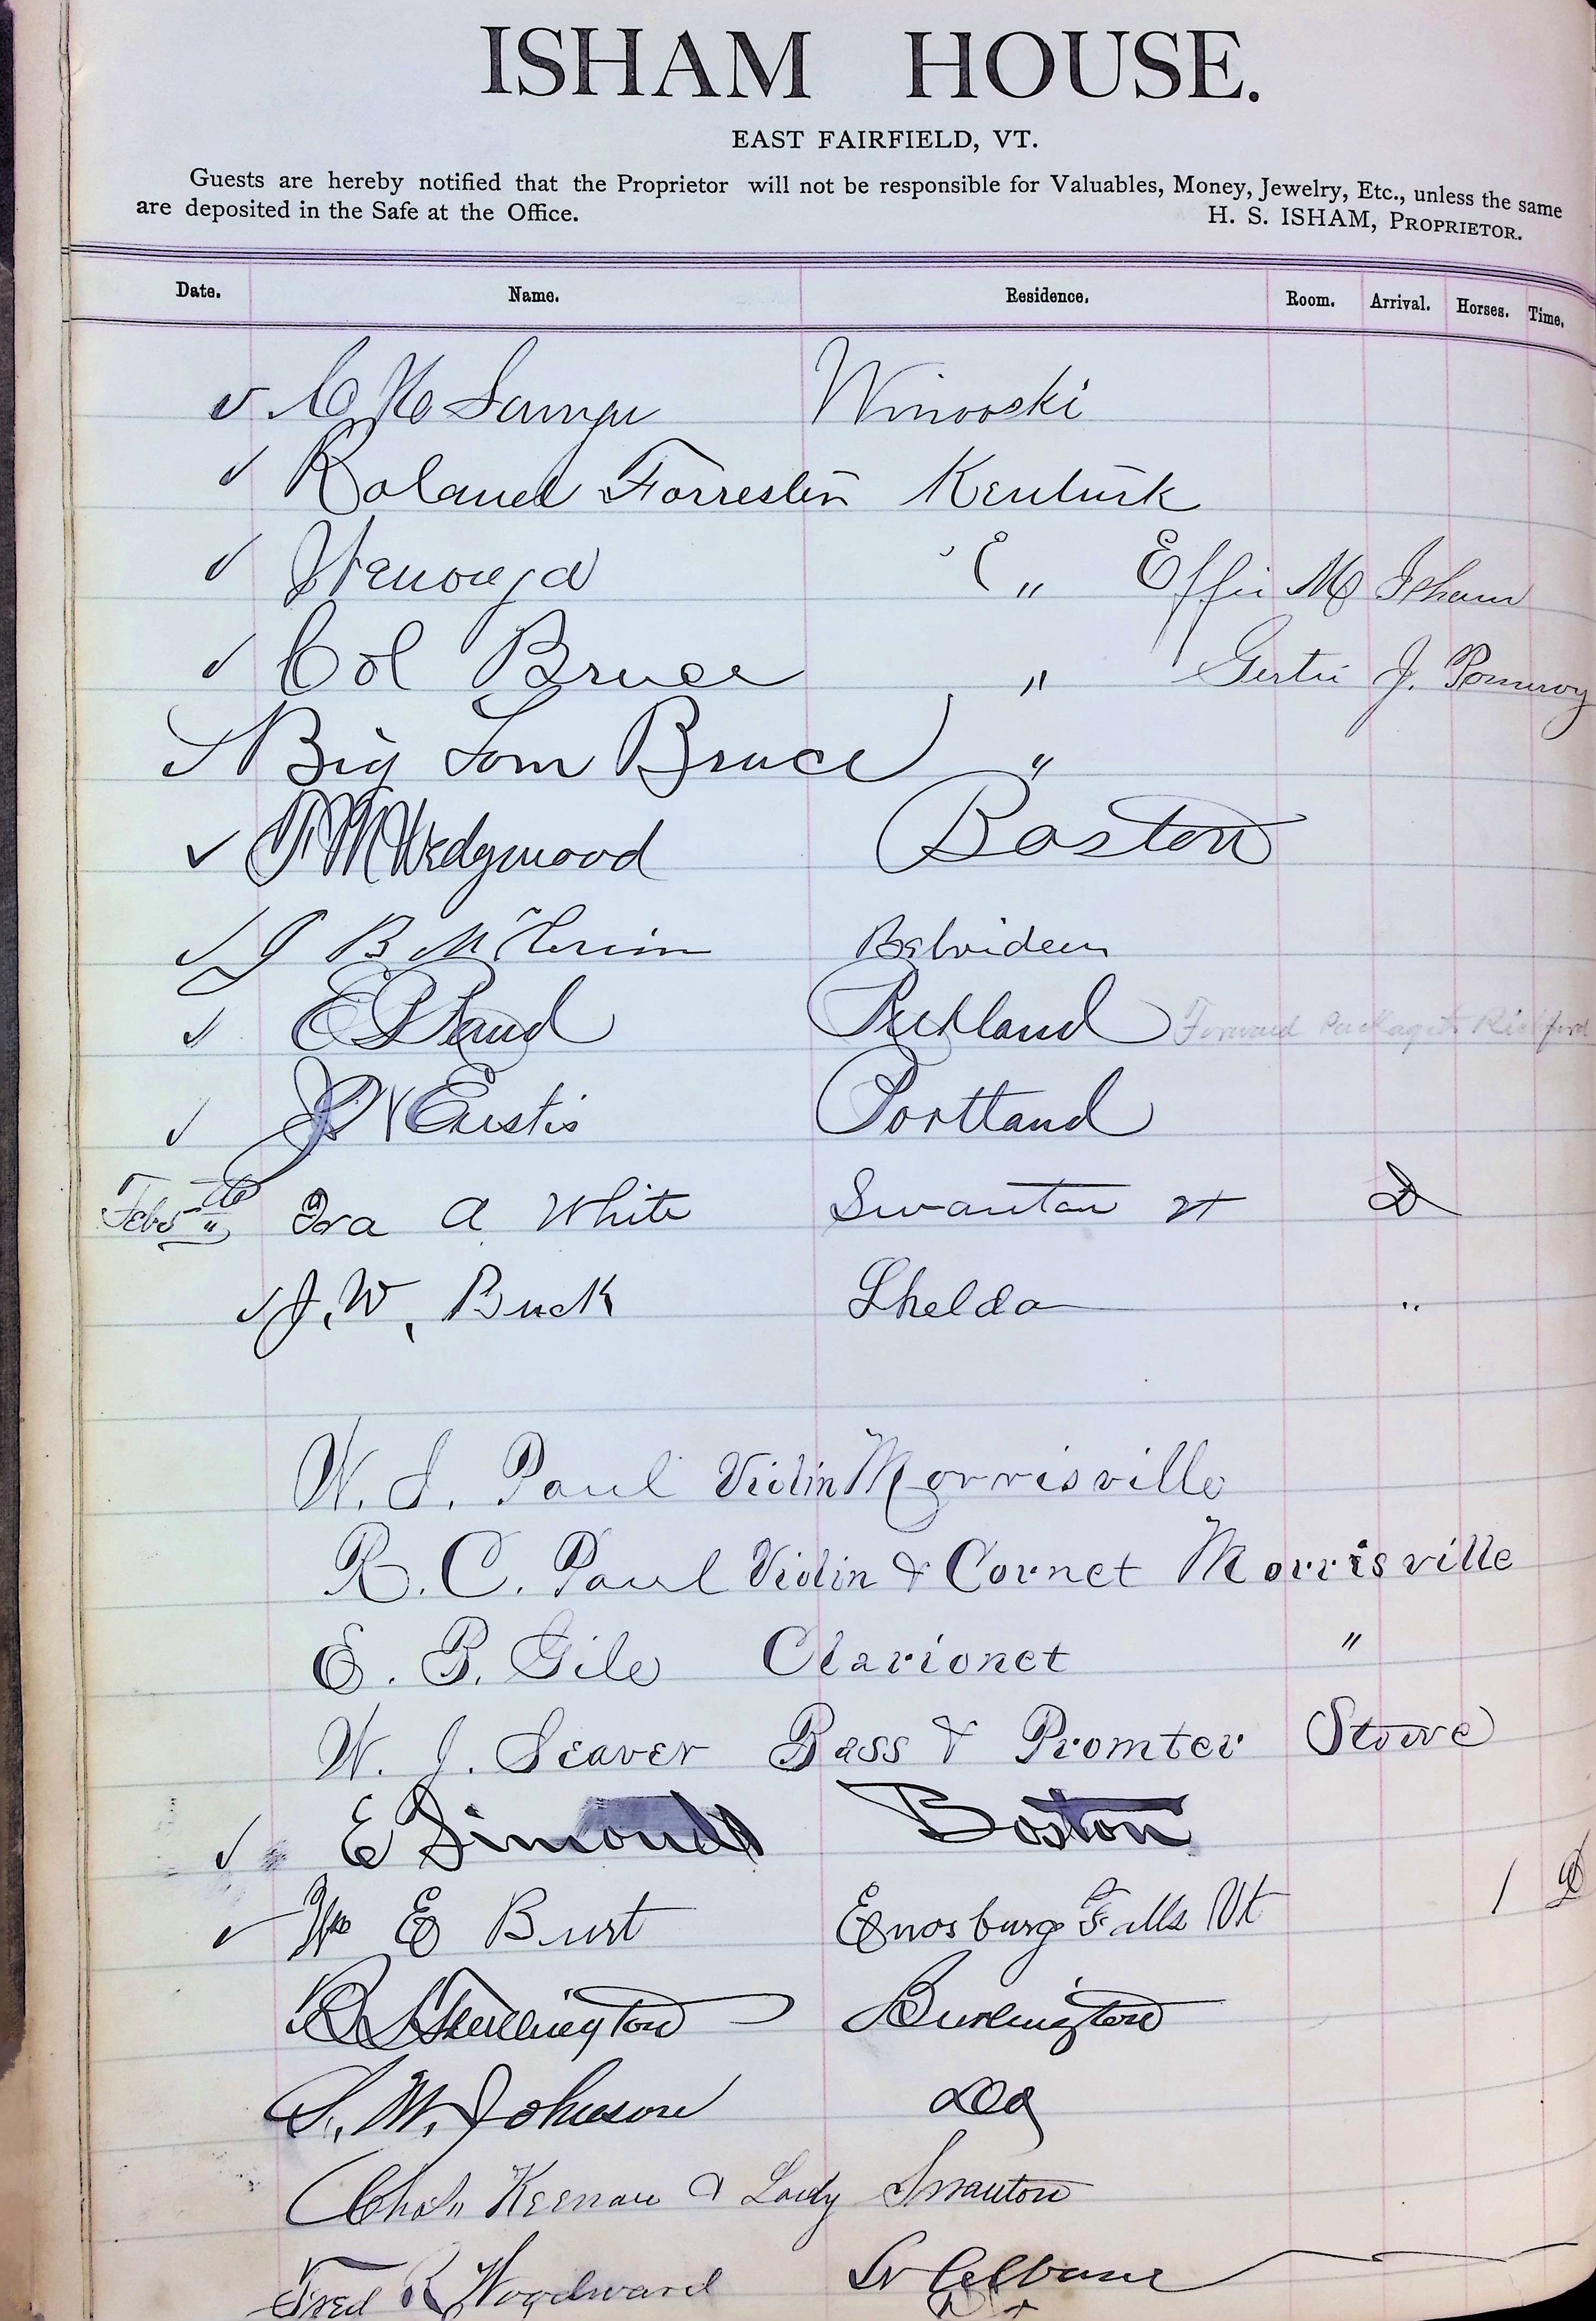 ISHAM HOUSE.
EAST FAIRFIELD, VT.
Guests are hereby notified that the Proprietor will not be responsible for Valuables, Money, Jewelry, Etc., unless the same
are deposited in the Safe at the Office. H. S. ISHAM, PROPRIETOR.
Date. Name. Residence. Room. Arrival. Horses. Time.
Winooski
Roland
" Effie M Isham
Col Bruce " Gertie J. Pomeroy
Big Tom Bruce "
Wedgwood Boston
J B Belvidere
E Rutland Forward Package to Richford
Eustis Portland
Feb 5th Ira A White Swanton Vt D
J. W. Buck Sheldo "
W. S. Paul Violin Morrisville
R. C. Paul Violin & Cornet Morrisville
E. B. Gile Clarionet "
W. J. Seaver Bass & Promter Stowe
E Simonds Boston
Wm E Burt Enosburg Falls Vt 1 D
Burlington
S. M. Johnson Do
Chas Keenan & Lady Swanton
Fred R Woodward St Albans